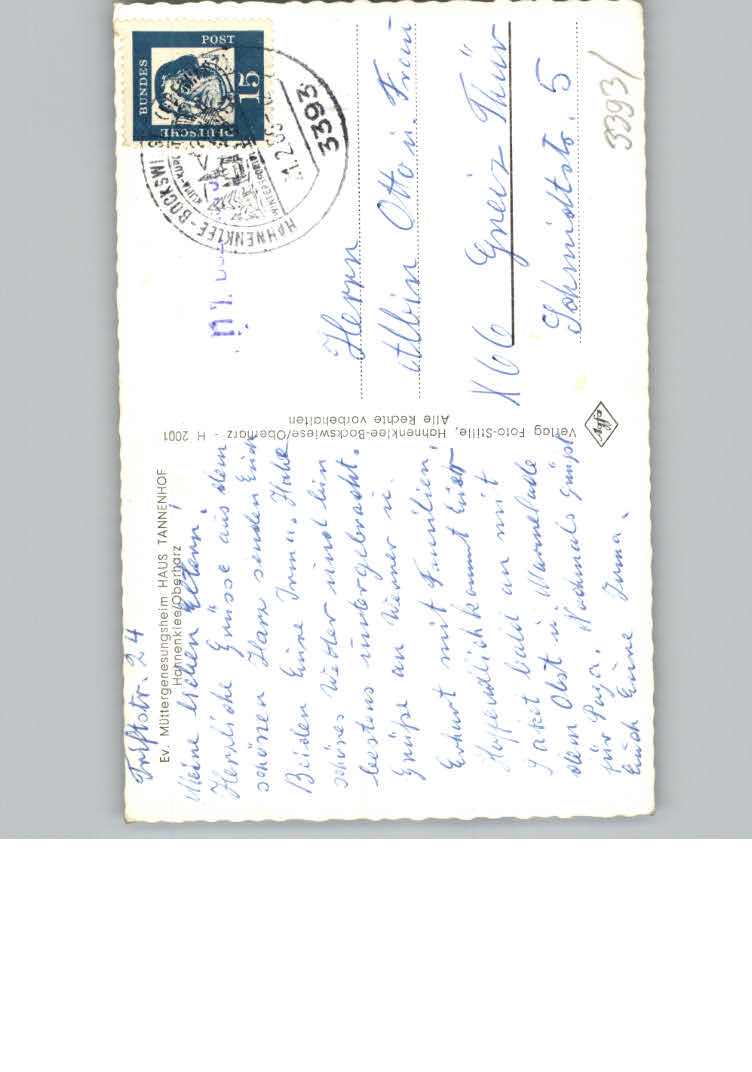 Triftstr. 24
Ev. Müttergenesungsheim HAUS TANNENHOF
Hahnenklee/Oberharz
Meine lieben Eltern!
Herzliche Grüsse aus dem
schönen Harz senden Euch
Beiden Eure Irma. Habe
schönes Wetter und bin
bestens untergebracht.
Grüße an Werner u.
Erhart mit Familien,
Hoffendlich kommt Euer
Paket bald an mit
dem Obst u. Marmelade
für Papa. Nochmals grüßt
Euch Eure Irma.
Verlag Foto-Stille, Hahnenklee-Bockswiese/Oberharz - H. 2001
Alle Rechte vorbehalten
Agfa
DEUTSCHE
BUNDES
POST
15
3393
HAHNENKLEE-BOCKSWI
Herrn
Albin Otto u. Frau
X66 Greiz Thür
Schmidtstr. 5
3393/